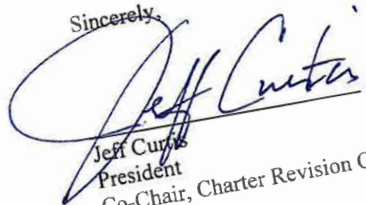 Sincerely,
Jeff Curtis
Jeff Curtis
President
Co-Chair, Charter Revision C